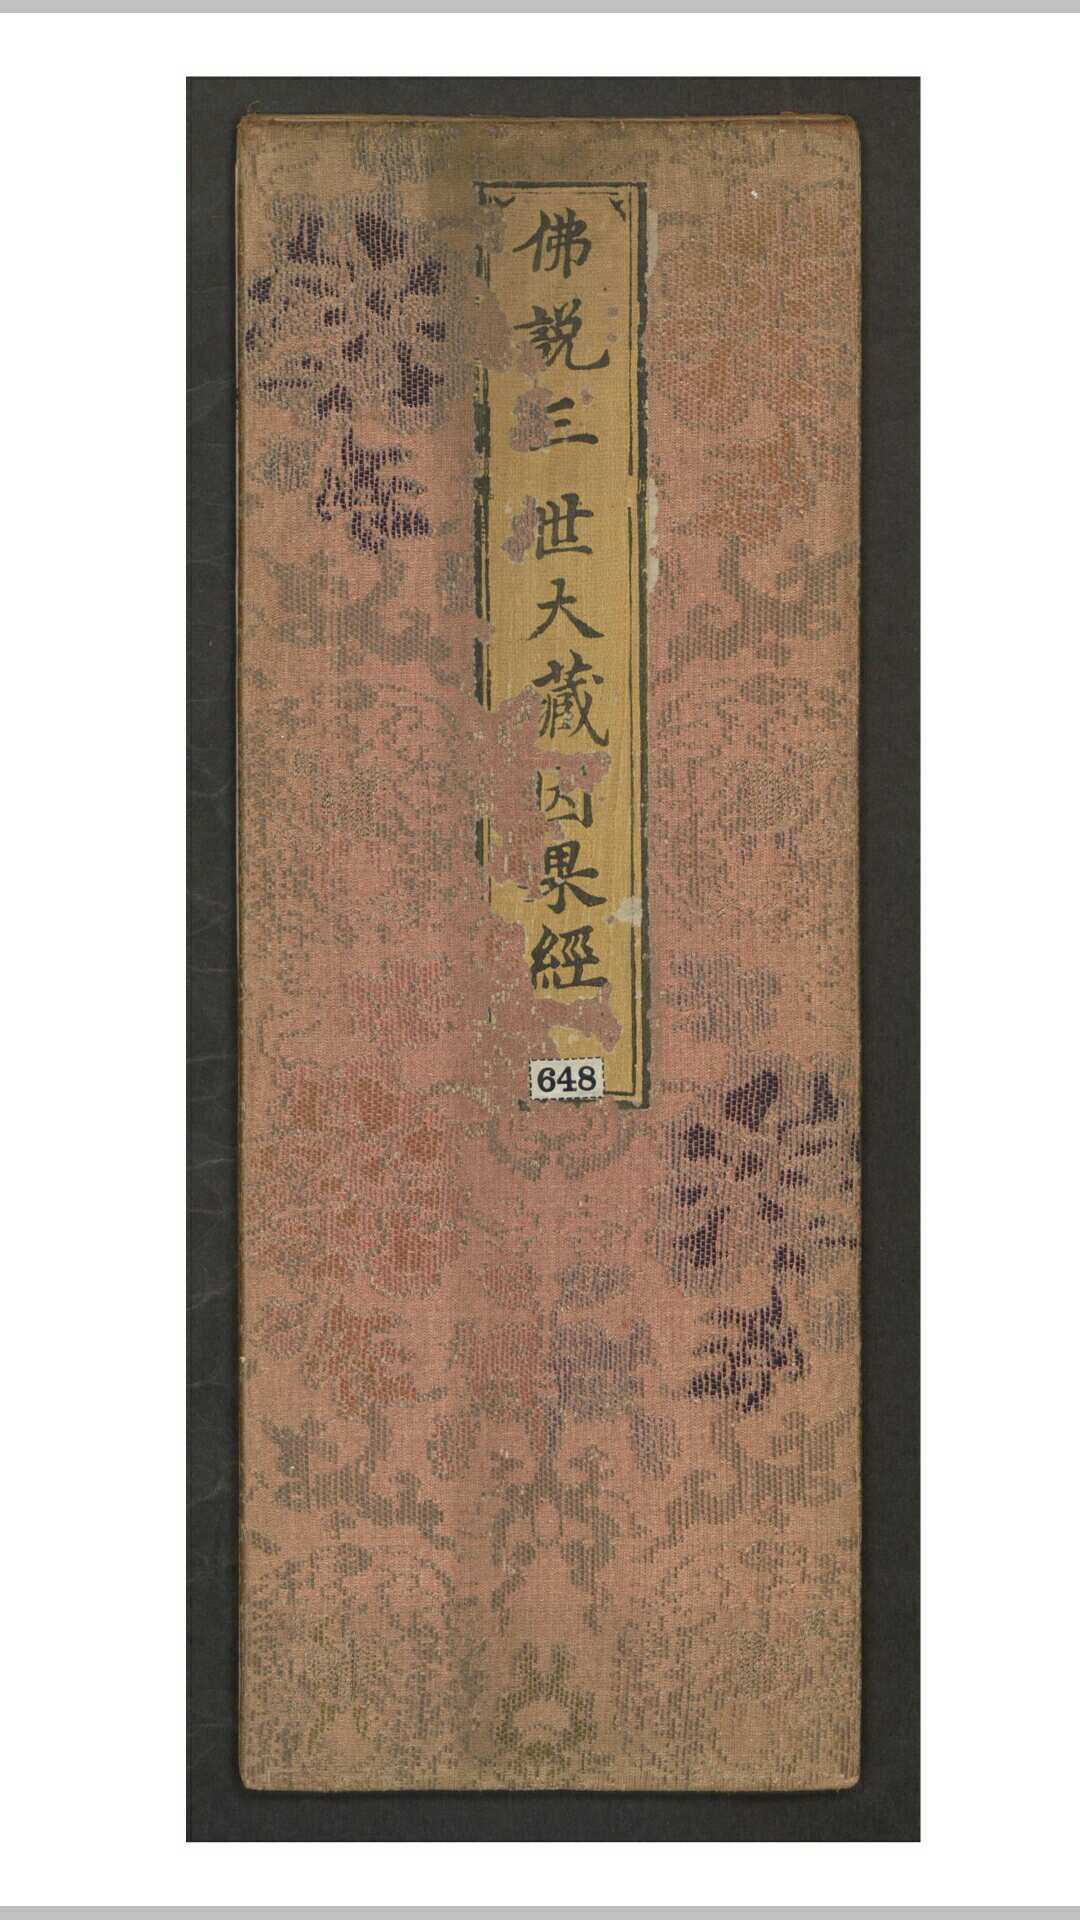 佛說三世大藏因果經
648